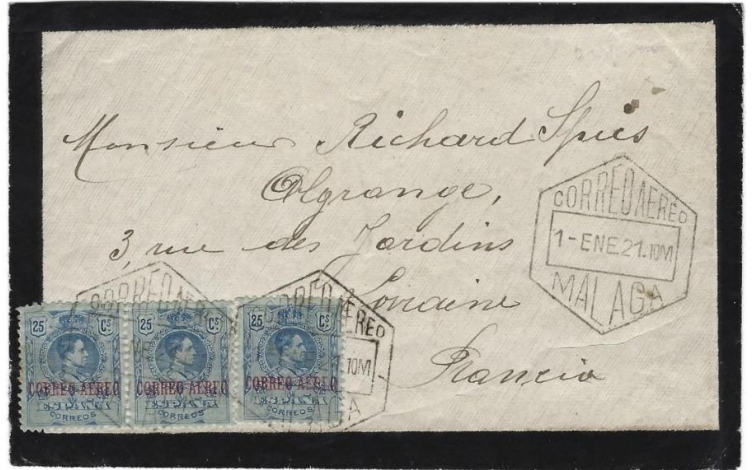 Monsieur Richard Spies
Algrange,
3, rue des Jardins
Lorraine
Francia
CORREO AEREO
1-ENE.21.10M
MALAGA
CORREO AEREO
25 Cs
CORREO-AEREO
ESPAÑA
CORREOS
25 Cs
CORREO-AEREO
ESPAÑA
CORREOS
CORREO AEREO
.10M
AGA
25 Cs
CORREO-AEREO
ESPAÑA
CORREOS